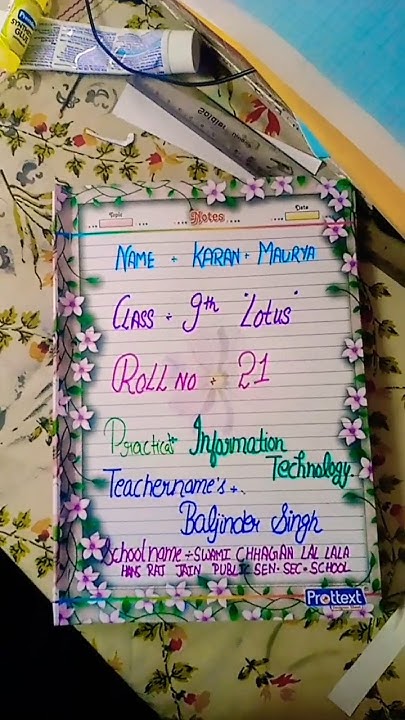 SYNTHETIC
GLUE
Topic Notes Date
NAME ÷ KARAN ÷ MAURYA
CLASS ÷ 9th "Lotus"
ROLL NO ÷ 21
Practical Information
Technology.
Teachername's ÷
Baljinder Singh
School name ÷ SWAMI CHHAGAN LAL LALA
HANS RAJ JAIN PUBLIC SEN. SEC. SCHOOL
Prottext